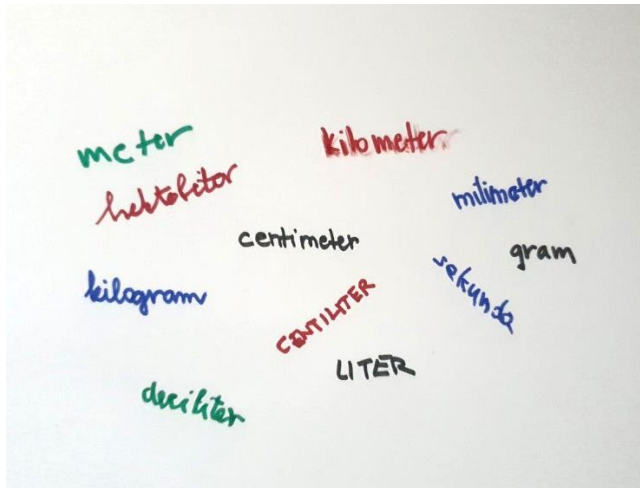 meter
kilometer
hektoliter
milimeter
centimeter
gram
sekunda
kilogram
CENTILITER
LITER
deciliter